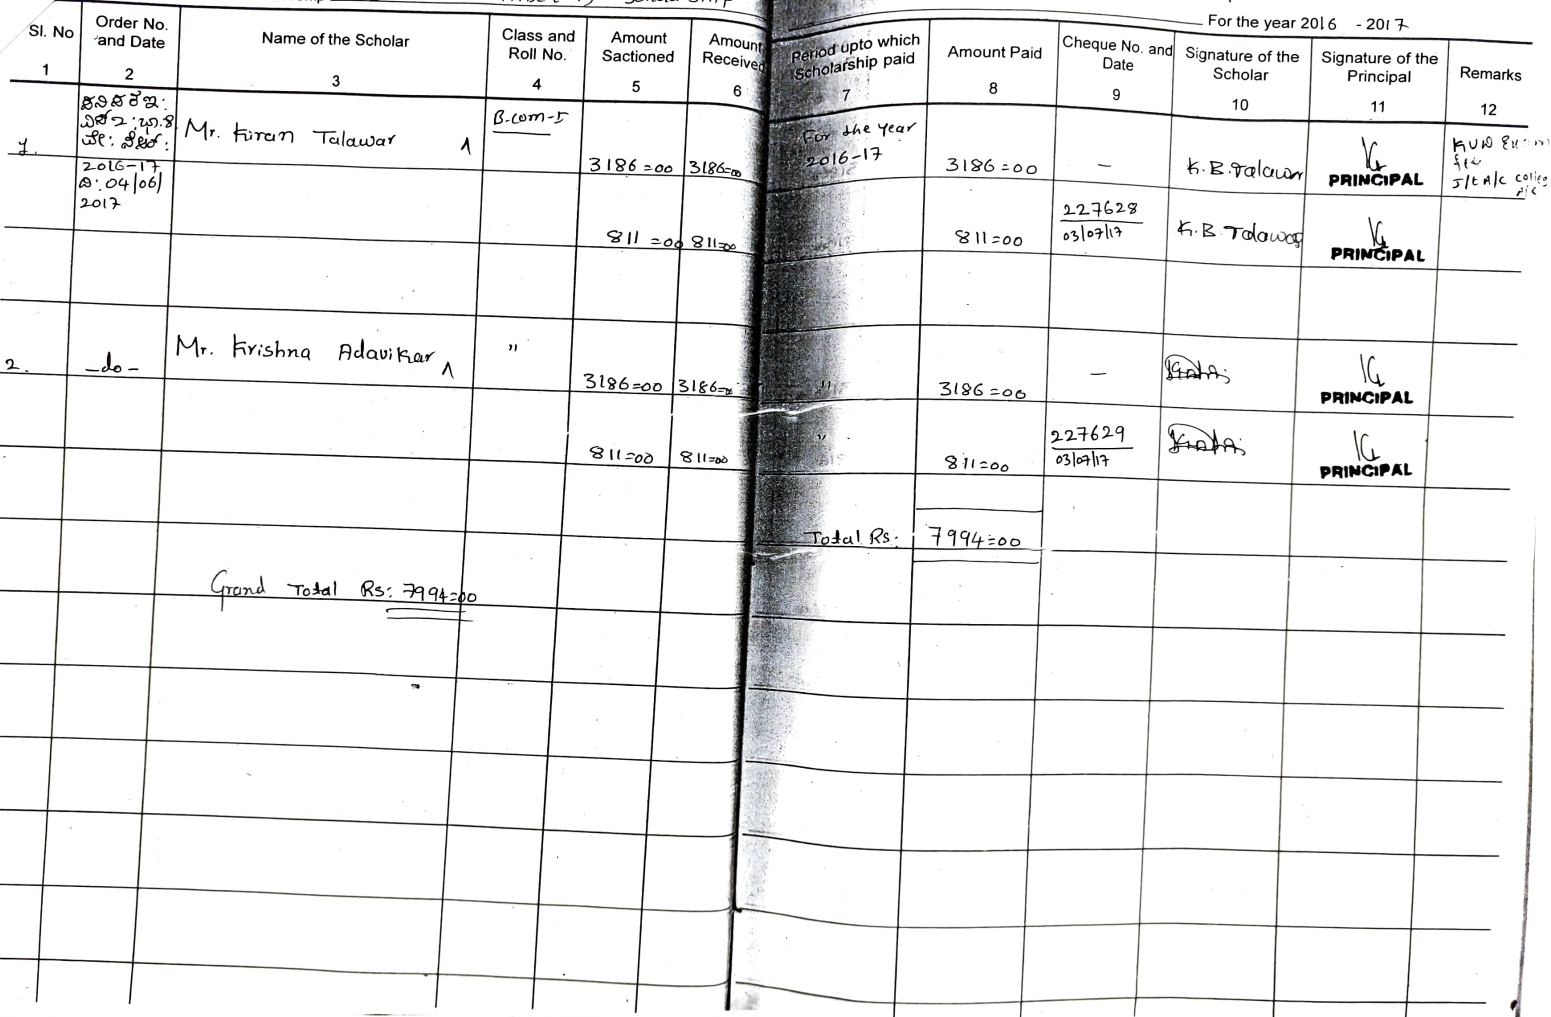 For the year 2016 - 2017
Sl. No
Order No. and Date
Name of the Scholar
Class and Roll No.
Amount Sactioned
Amount Received
Period upto which Scholarship paid
Amount Paid
Cheque No. and Date
Signature of the Scholar
Signature of the Principal
Remarks
1 2 3 4 5 6 7 8 9 10 11 12
1.
2016-17
ದಿ: 04/06/
2017
Mr. Kiran Talawar
B.com-I
3186=00 3186=00
For the year
2016-17
3186=00
-
K.B.Talawar
PRINCIPAL
KUD
811=00 811=00
811=00
227628
03/07/17
K.B. Talawar
PRINCIPAL
2.
-do-
Mr. Krishna Adavikar
"
3186=00 3186=00
"
3186=00
-
PRINCIPAL
811=00 811=00
"
811=00
227629
03/07/17
PRINCIPAL
Total Rs: 7994=00
Grand Total Rs: 7994=00